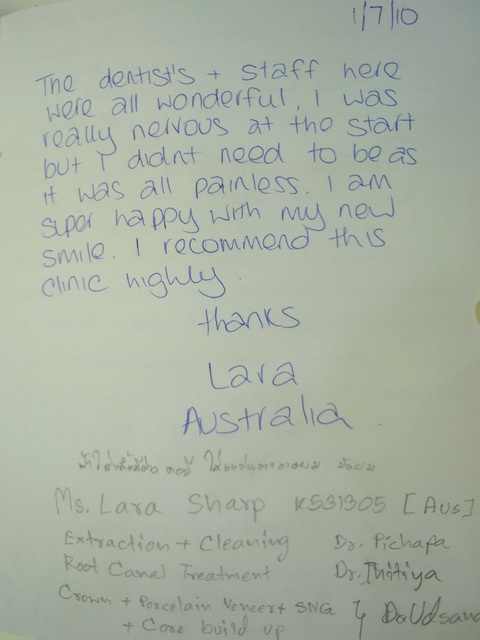 1/7/10
The dentist's + staff here
were all wonderful, I was
really nervous at the start
but I didnt need to be as
it was all painless. I am
super happy with my new
smile. I recommend this
clinic highly.
thanks
Lara
Australia.
Ms. Lara Sharp K531305 [Aus]
Extraction + Cleaning Dr. Pichapa
Root Canal Treatment Dr.
Crown + Porcelain Veneer + SNG
+ Core build up